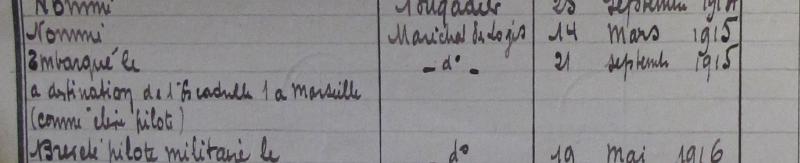 Nommé Brigadier 23 Septembre 1914
Nommé Maréchal des Logis 14 Mars 1915
Embarqué le _ d° _ 21 septembre 1915
a destination de l'Escadrille 1 a Marseille
(comme élève pilote)
Breveté pilote militaire le d° 19 mai 1916